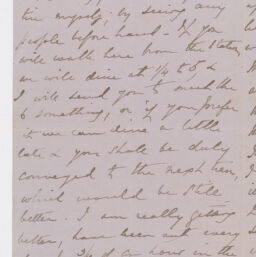 tire myself, by seeing any
people before hand — If you
will walk here from the station,
we will dine at 1/4 to 5, &
I will send you to meet the
6 something, or if you prefer
it we can dine a little
late & you shall be duly
conveyed to the
which would be still
better. I am really getting
better, have been out every
3/4 of an hour in the